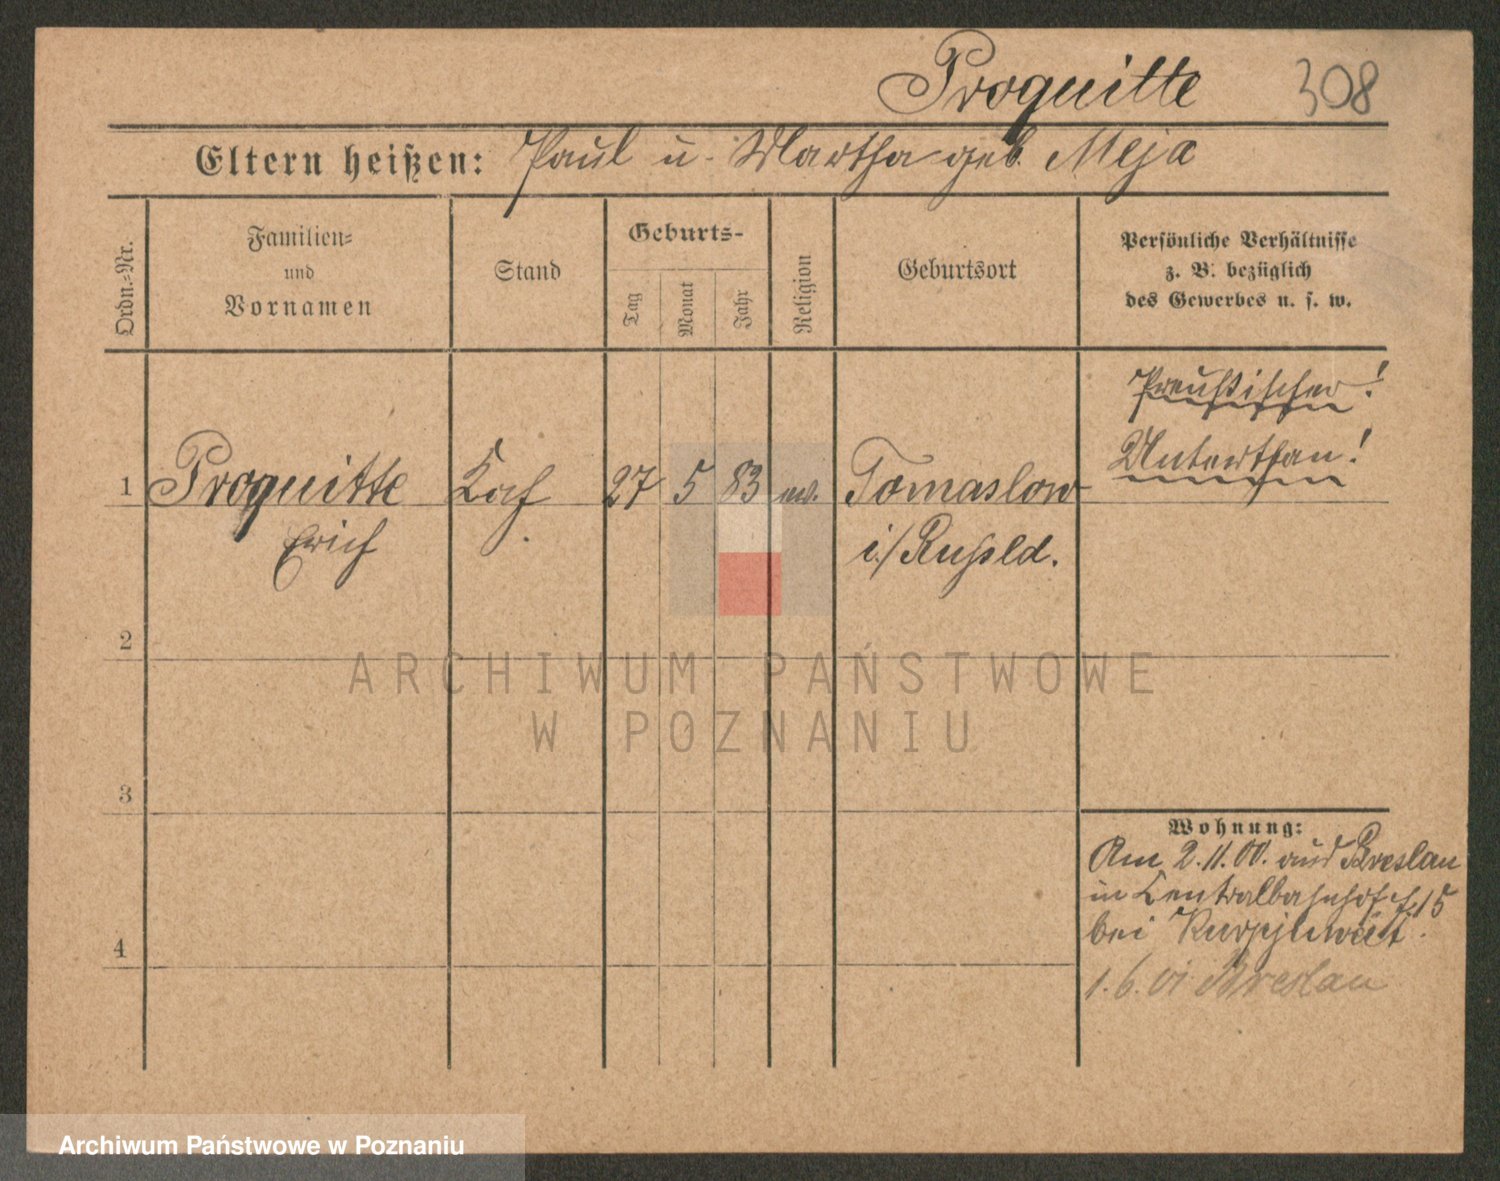 Proquitte 308
Eltern heißen: Paul u. Martha geb. Meja
Ordn.-Nr.
Familien-
und
Vornamen
Stand
Geburts-
Tag
Monat
Jahr
Religion
Geburtsort
Persönliche Verhältnisse
z. B. bezüglich
des Gewerbes u. s. w.
Preußischer!
Unterthan!
1 Proquitte 27 5 83 ev. Tomaslow
Erich i/Rußld.
2
3
4
Wohnung:
Am 2.11.00. aus Breslau
in Centralbahnhof 15
bei
1.6.01 Breslau
ARCHIWUM PAŃSTWOWE
W POZNANIU
Archiwum Państwowe w Poznaniu